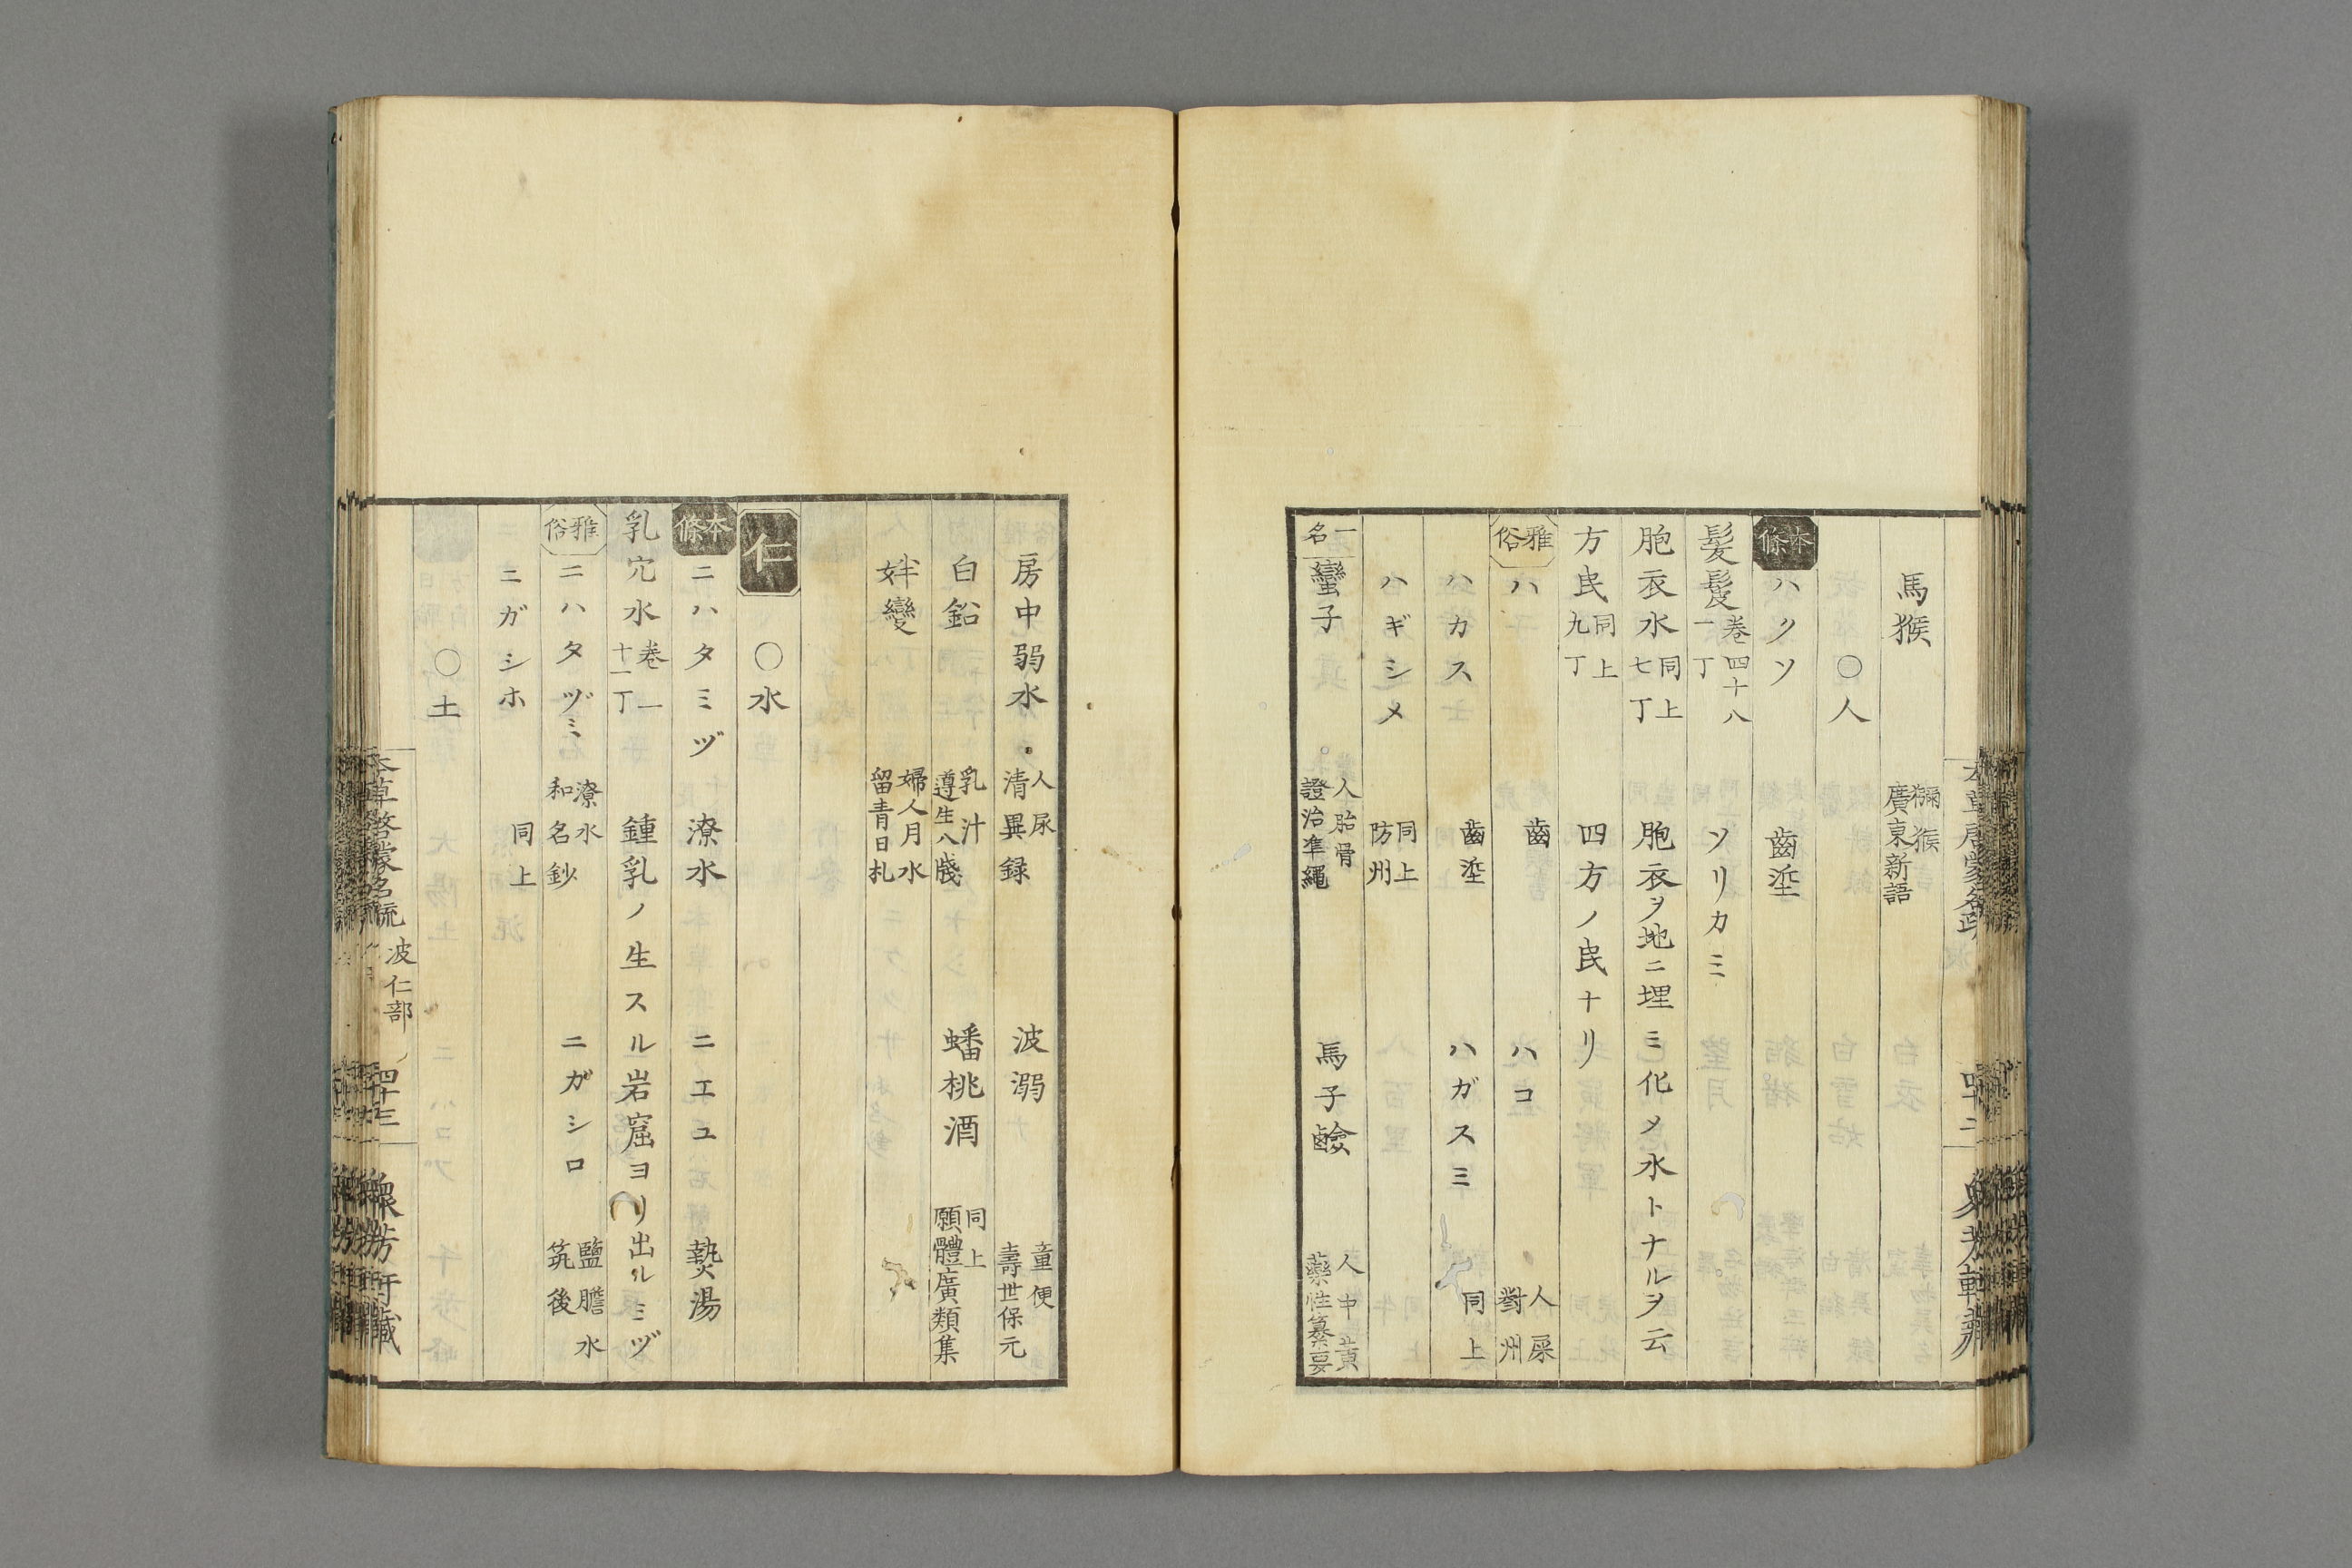 馬猴 獼猴 廣東新語
○人
本條 ハクソ 齒垽
髪髲 卷四十八 一丁 ソリカミ
胞衣水 同上 七丁 胞衣ヲ地ニ埋ミ化メ水トナルヲ云
方民 同上 九丁 四方ノ民ナリ
雅俗 ハ 齒 ハコ 人屎 對州
ハカス 齒垽 ハガスミ 同上
ハギシメ 同上 防州
一名 蠻子 人胎骨 證治準繩 馬子鹼 人中黄 藥性纂要
房中弱水 人尿 清異録 波溺 童便 壽世保元
白鉛 乳汁 遵生八牋 蟠桃酒 同上 願體廣類集
姅變 婦人月水 留青日札
仁 ○水
本條 ニハタミヅ 潦水 ニエユ 熱湯
乳穴水 卷一 十一丁 鍾乳ノ生スル岩窟ヨリ出ルミヅ
雅俗 ニハタヅミ 潦水 和名鈔 ニガシロ 鹽膽水 筑後
ニガシホ 同上
○土
本草啓蒙名疏 波仁部 四十三 衆芳軒藏